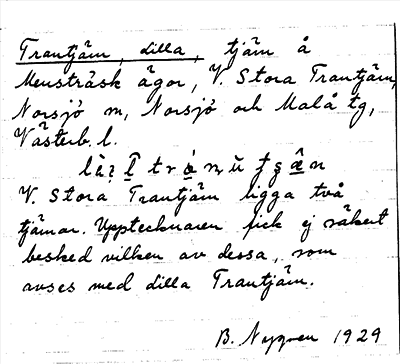 Trantjärn, lilla, tjärn å
Mensträsk ägor, V. Stora Trantjärn,
Norsjö sn, Norsjö och Malå tg,
Västerb. l.
V. Stora Trantjärn ligga två
tjärnar. Upptecknaren fick ej säkert
besked vilken av dessa, som
avses med lilla Trantjärn.
B. Nygren 1929